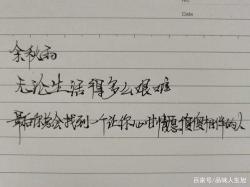 余秋雨
无论生活得多么艰难
最后你总会找到一个让你心甘情愿傻傻相伴的人
百家号/品味人生旭